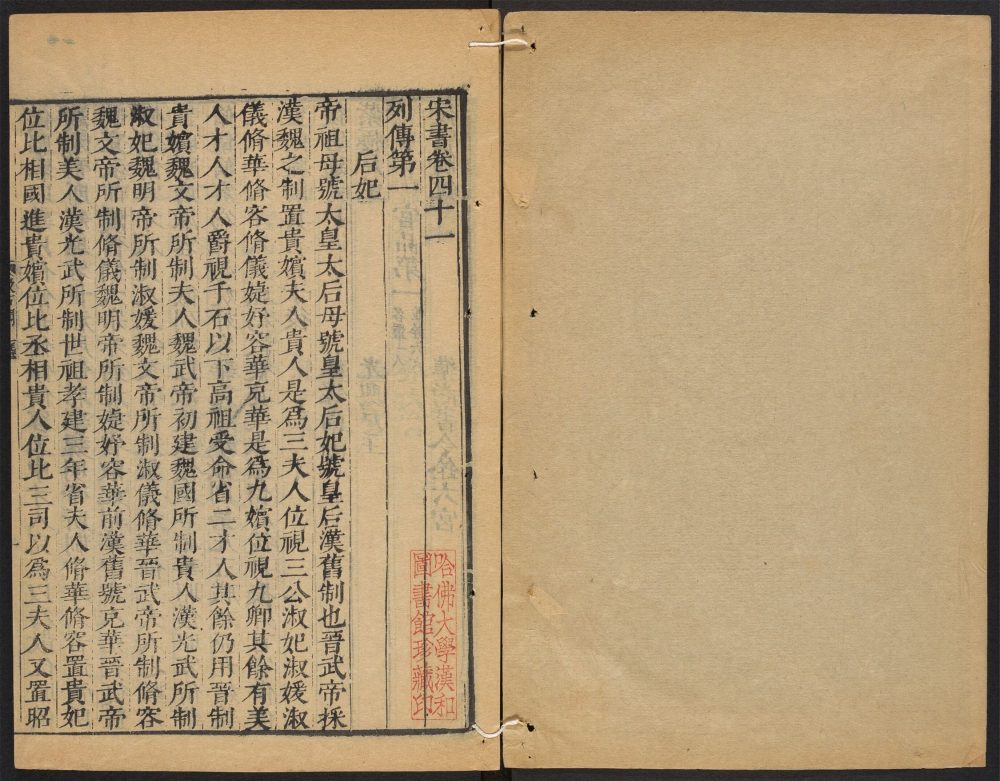 宋書卷四十一
列傳第一
后妃
帝祖母號太皇太后母號皇太后妃號皇后漢舊制也晉武帝採
漢魏之制置貴嬪夫人貴人是爲三夫人位視三公淑妃淑媛淑
儀脩華脩容脩儀婕妤容華充華是爲九嬪位視九卿其餘有美
人才人才人爵視千石以下高祖受命省二才人其餘仍用晉制
貴嬪魏文帝所制夫人魏武帝初建魏國所制貴人漢光武所制
淑妃魏明帝所制淑媛魏文帝所制淑儀脩華晉武帝所制脩容
魏文帝所制脩儀魏明帝所制婕妤容華前漢舊號充華晉武帝
所制美人漢光武所制世祖孝建三年省夫人脩華脩容置貴妃
位比相國進貴嬪位比丞相貴人位比三司以爲三夫人又置昭
哈佛大學漢和
圖書館珍藏印